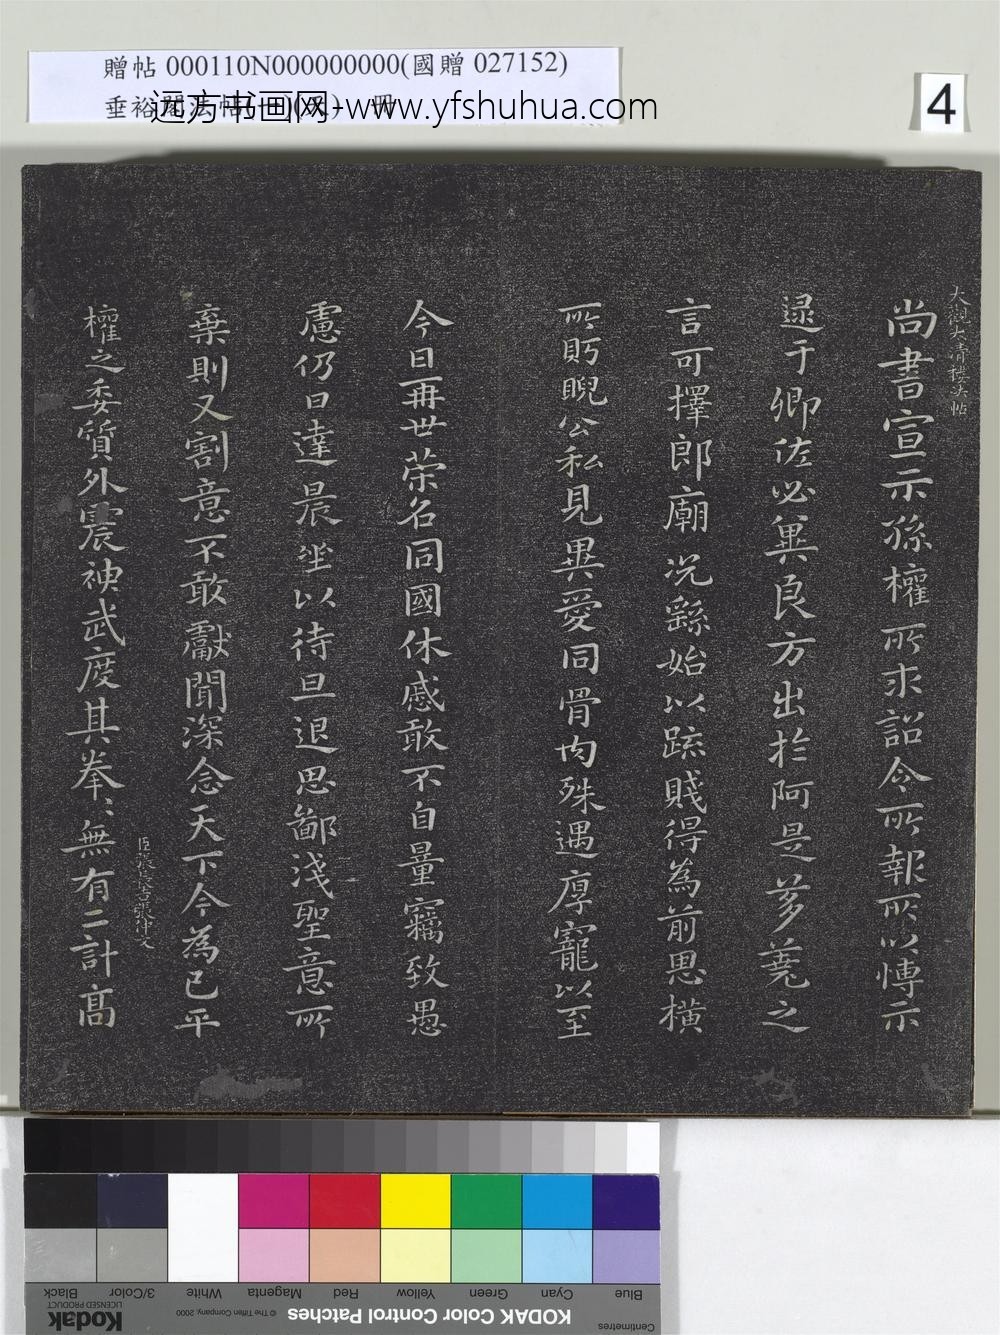 贈帖 000110N000000000(國贈 027152)
垂裕閣法帖
远方书画网-www.yfshuhua.com
冊
4
大觀太清樓法帖
尚書宣示孫權所求詔令所報所以博示
逮于卿佐必冀良方出於阿是芻蕘之
言可擇郎廟况繇始以疏賤得為前思橫
所眄睨公私見異愛同骨肉殊遇厚寵以至
今日再世荣名同國休慼敢不自量竊致愚
慮仍日達晨坐以待旦退思鄙淺聖意所
棄則又割意不敢獻聞深念天下今為已平
權之委質外震神武度其拳〻無有二計高
張仲文
KODAK Color Control Patches
© The Tiffen Company, 2000
Kodak
LICENSED PRODUCT
Centimetres
Blue
Cyan
Green
Yellow
Red
Magenta
White
3/Color
Black